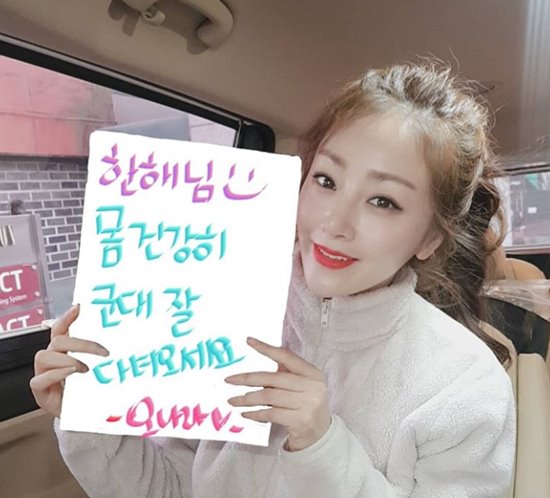 한해님
몸 건강히
군대 잘
다녀오세요
-오나라♡-
CT
ing System
CT